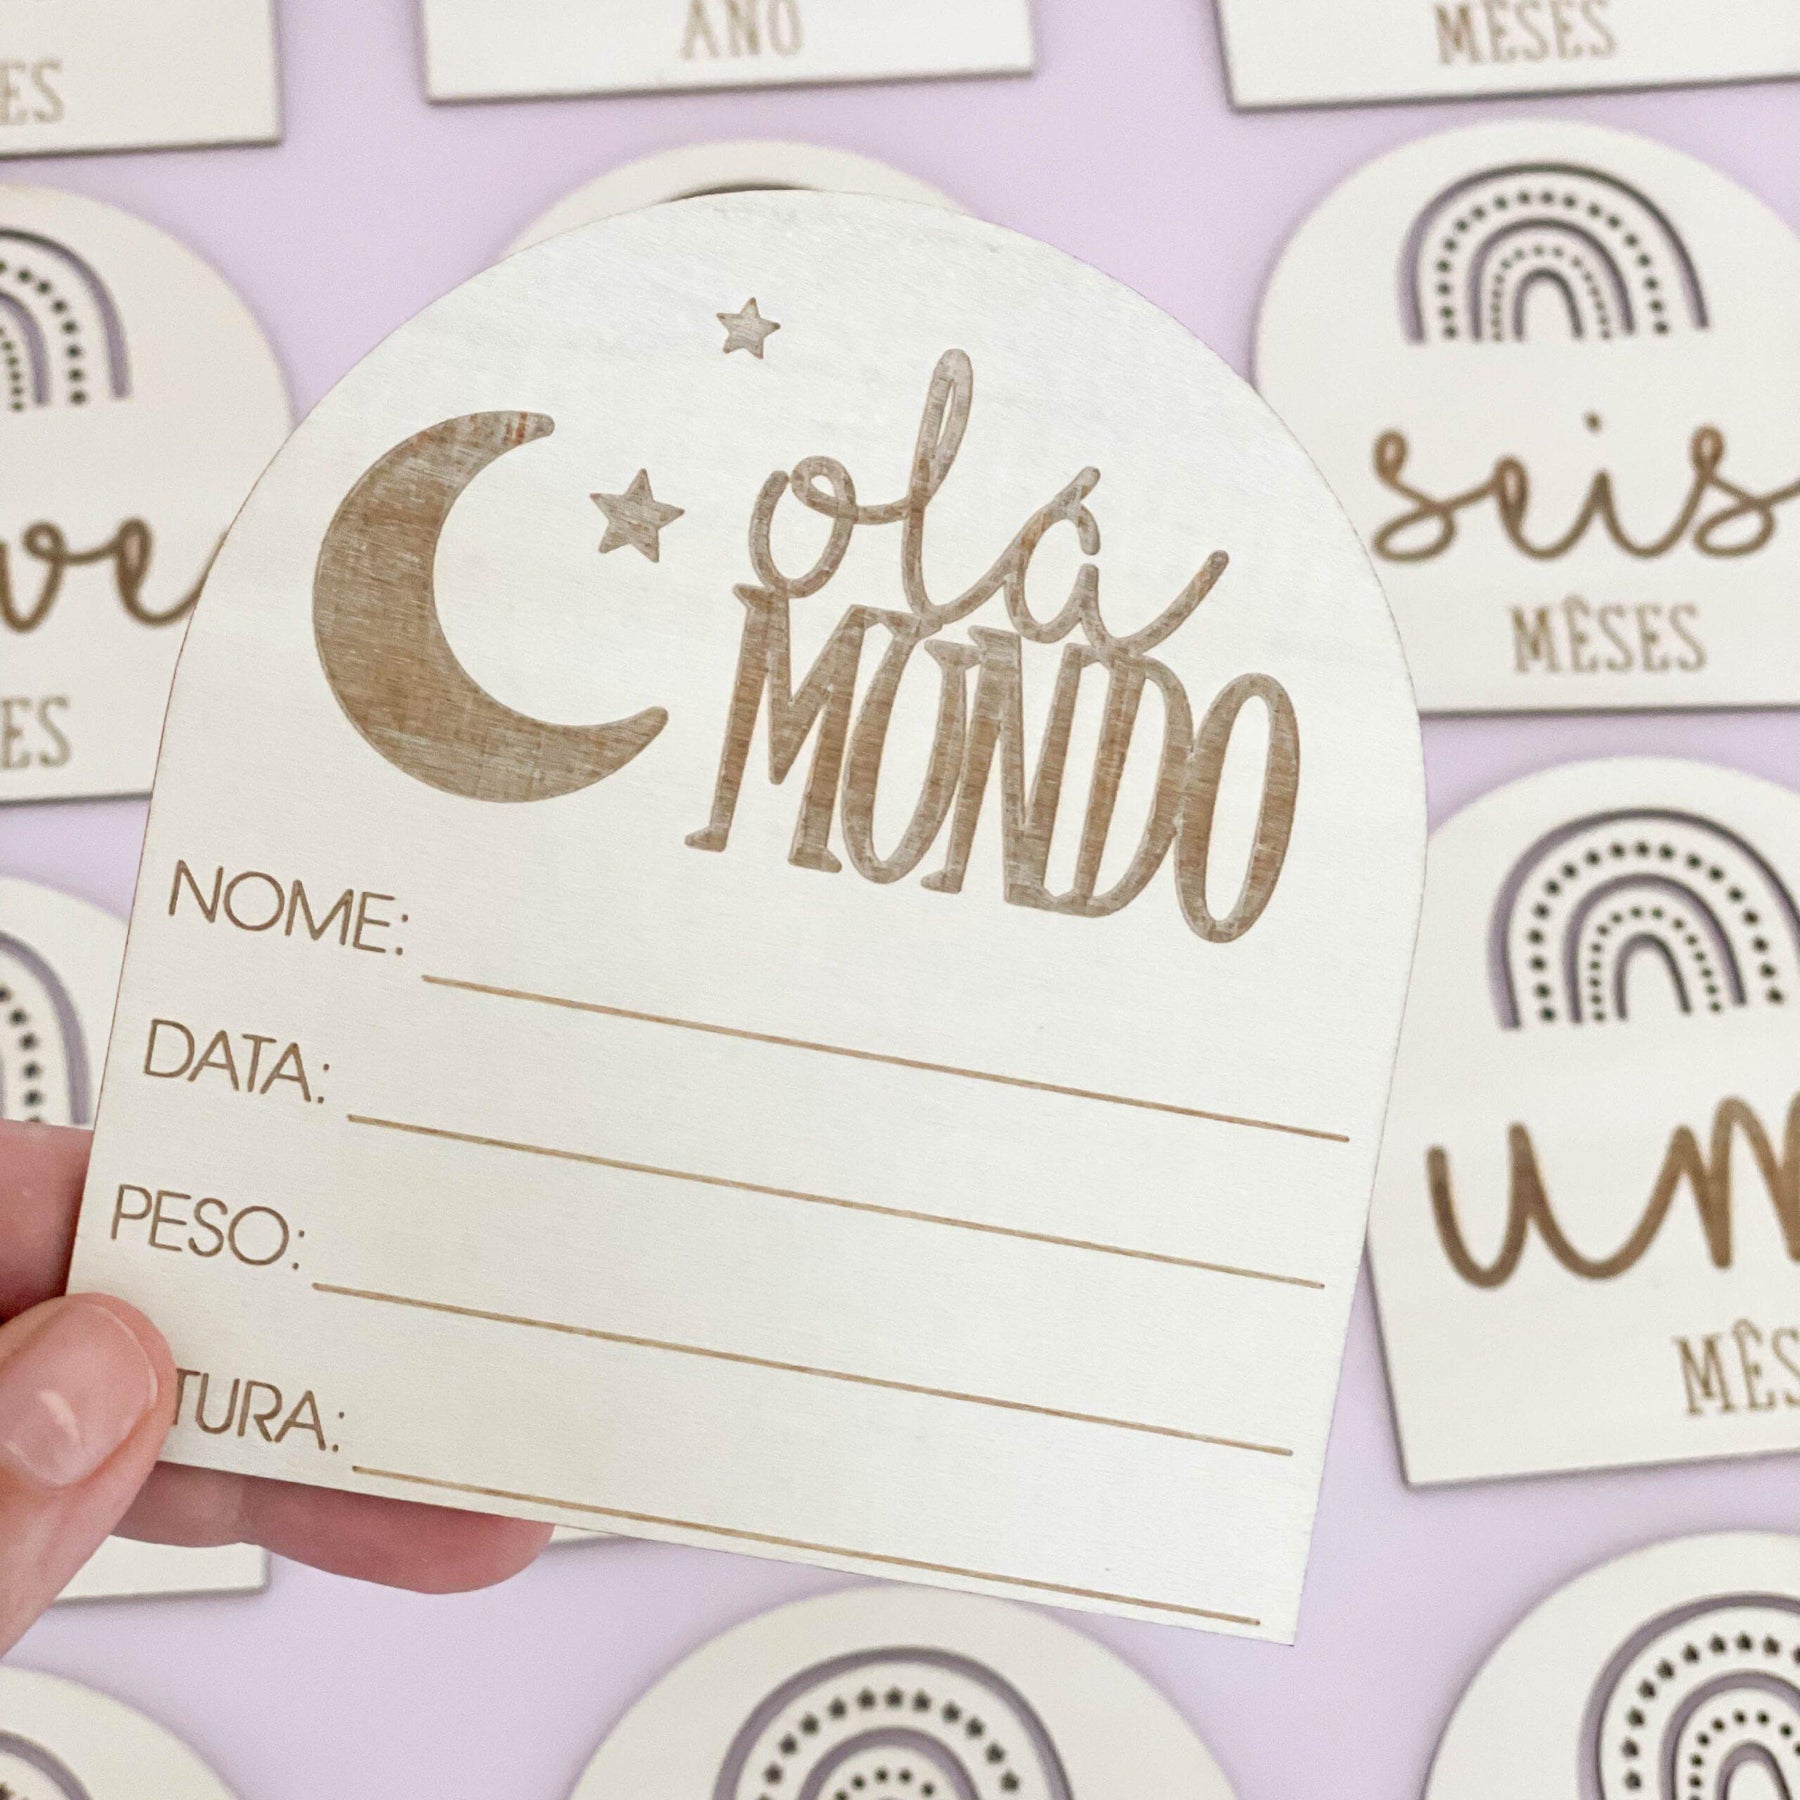 ANO
MÊSES
ES
olá
MUNDO
NOME:
DATA:
PESO:
TURA:
ve
ES
seis
MÊSES
um
MÊS